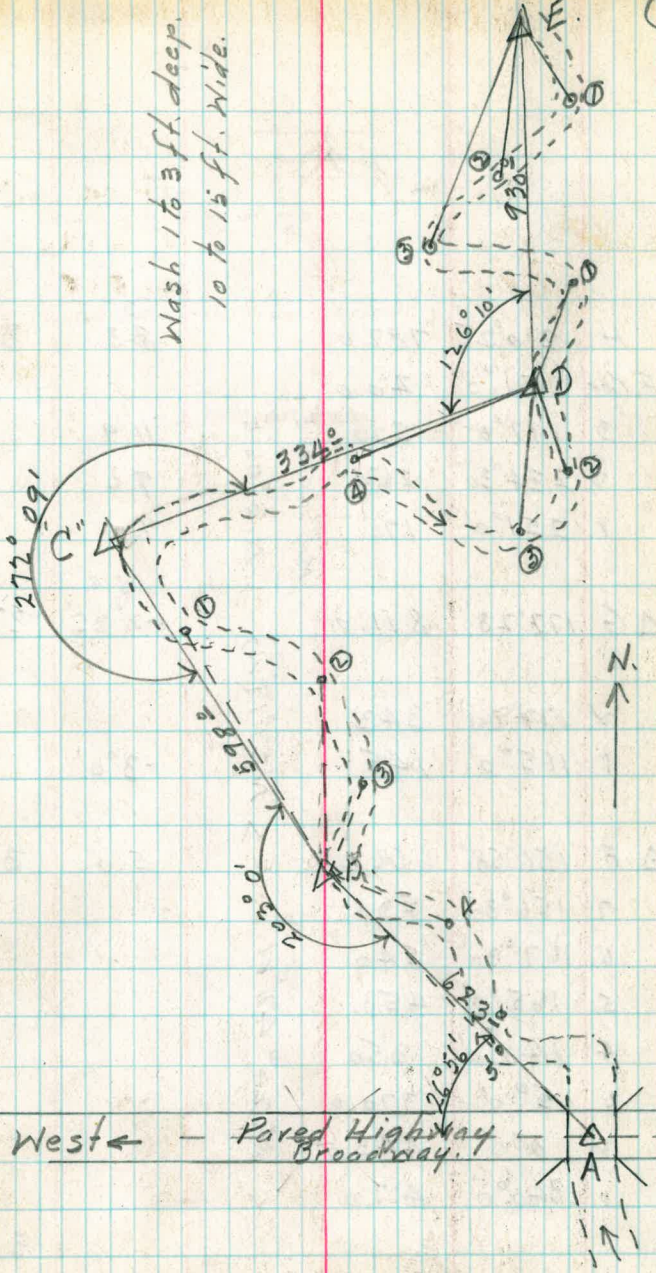 Wash 1 to 3 ft. deep.
10 to 15 ft. Wide.
E
①
②
③
930
①
126° 10'
D
334º
④
②
③
272° 09'
"C"
①
②
598º
③
B.
203° 0'
4
5
26° 56'
N.
West ← - Paved Highway -
Broadway.
A